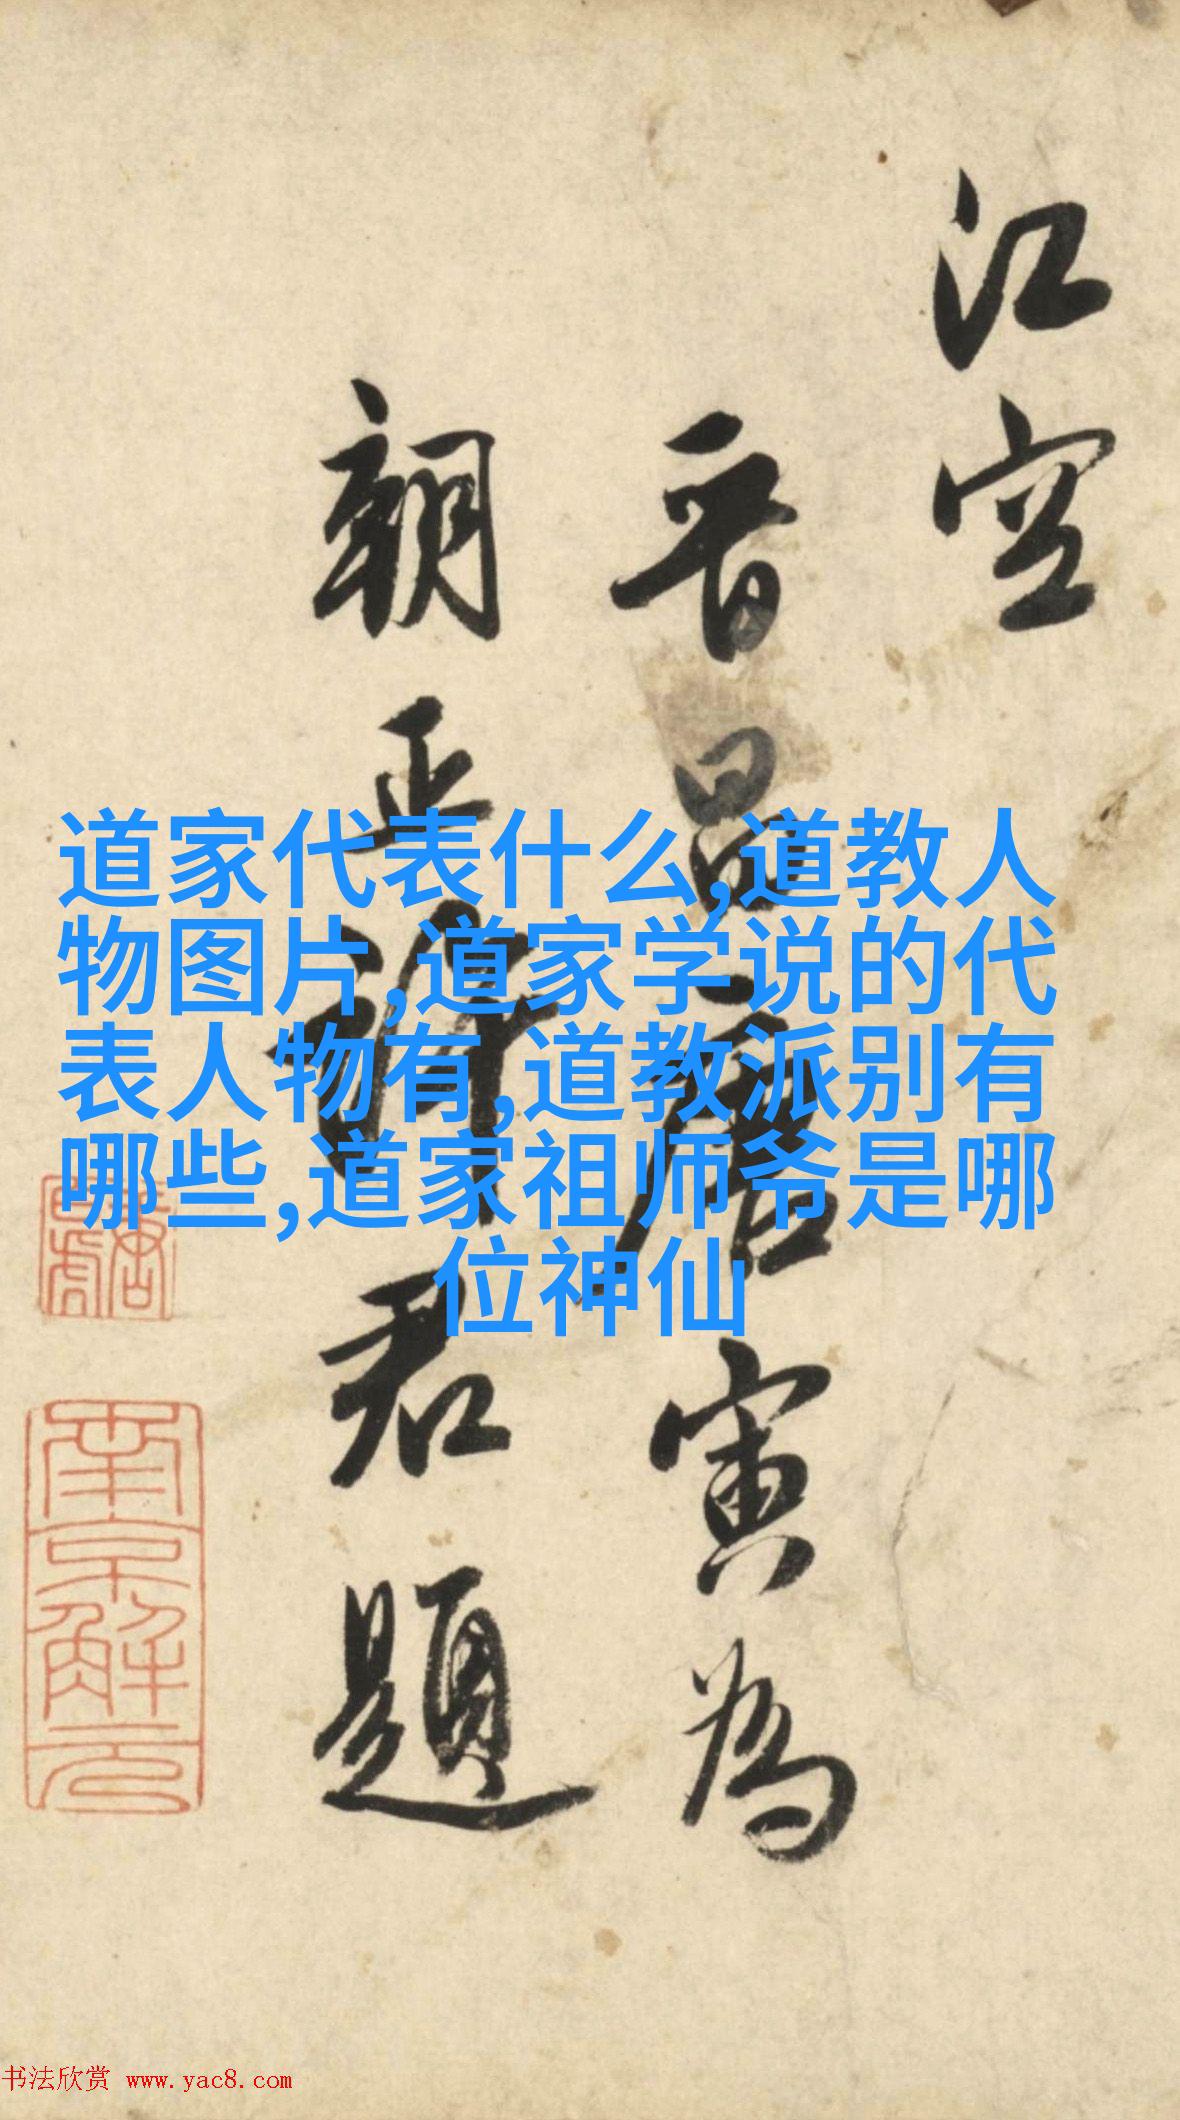 江空
晋昌唐寅为
朝正许君题
道家代表什么,道教人
物图片,道家学说的代
表人物有,道教派别有
哪些,道家祖师爷是哪
位神仙
南京解元
书法欣赏 www.yac8.com